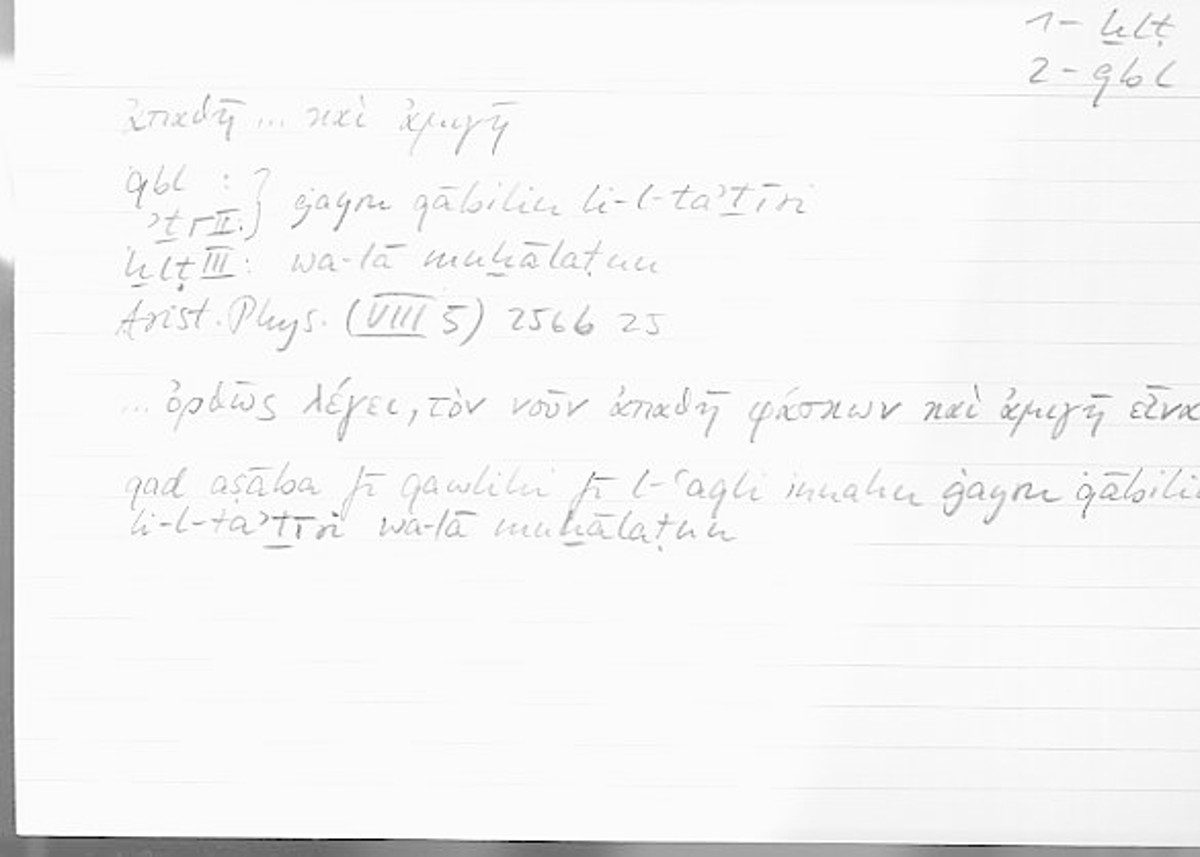 1 - ḫlṭ
2 - qbl
ἀπαθῆ ... καὶ ἀμιγῆ
qbl : }
ʾṯr II: } ġayru qābilin li-l-taʾṯīri
ḫlṭ III : wa-lā muḫālaṭun
Arist. Phys. (VIII 5) 256b 25
... ὀρθῶς λέγει, τὸν νοῦν ἀπαθῆ φάσκων καὶ ἀμιγῆ εἶνα
qad aṣāba fī qawlihi fī l-ʿaqli innahu ġayru qābili
li-l-taʾṯīri wa-lā muḫālaṭun